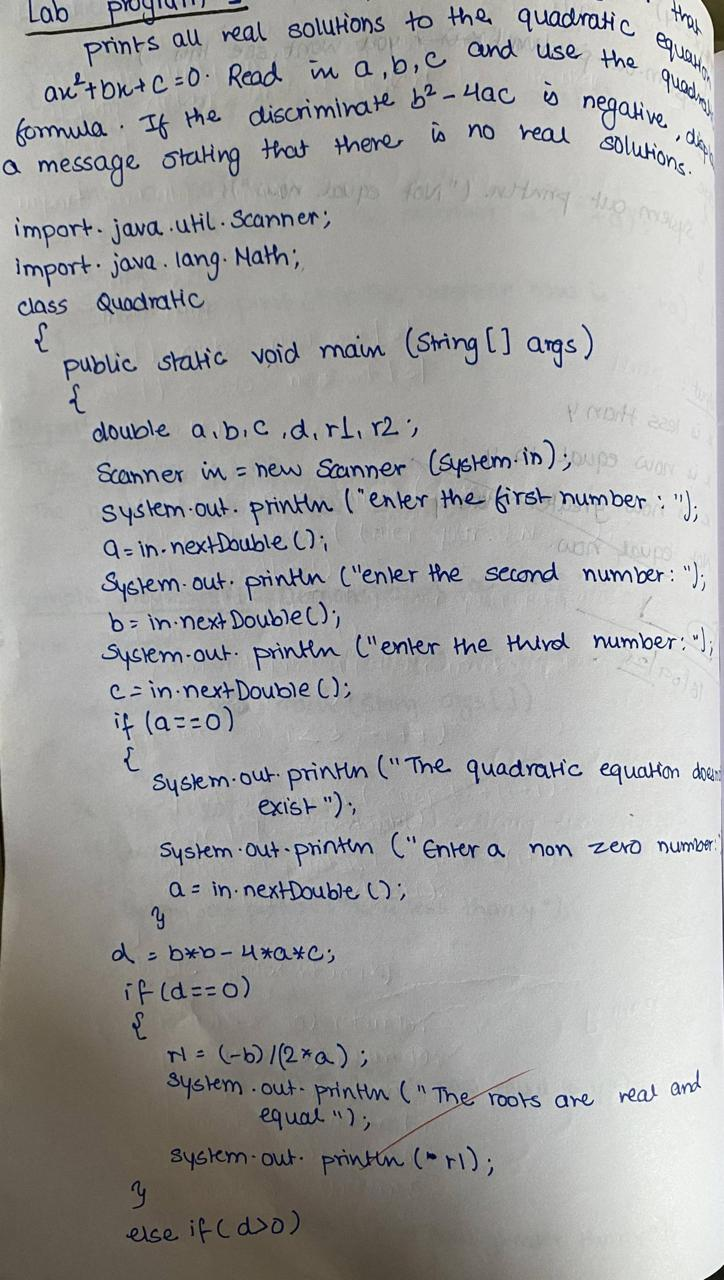 Lab program
that
prints all real solutions to the quadratic equation
ax²+bx+c=0. Read in a,b,c and use the quadra
formula. If the discriminate b²-4ac is negative, displ
a message stating that there is no real solutions.
import. java.util.Scanner;
import. java.lang.Math;
class Quadratic
{
public static void main (String [] args)
{
double a,b,c,d,r1,r2;
Scanner in = new Scanner (System.in);
System.out. println ("enter the first number : ");
a=in.nextDouble();
System.out. println ("enter the second number: ");
b = in.nextDouble();
System.out. println ("enter the third number: ");
c=in.nextDouble();
if (a==0)
{
System.out.println ("The quadratic equation doesn
exist");
System.out.println ("Enter a non zero number:"
a = in.nextDouble();
}
d = b*b-4*a*c;
if (d==0)
{
r1 = (-b)/(2*a);
System.out.println ("The roots are real and
equal");
System.out. println (r1);
}
else if (d>0)